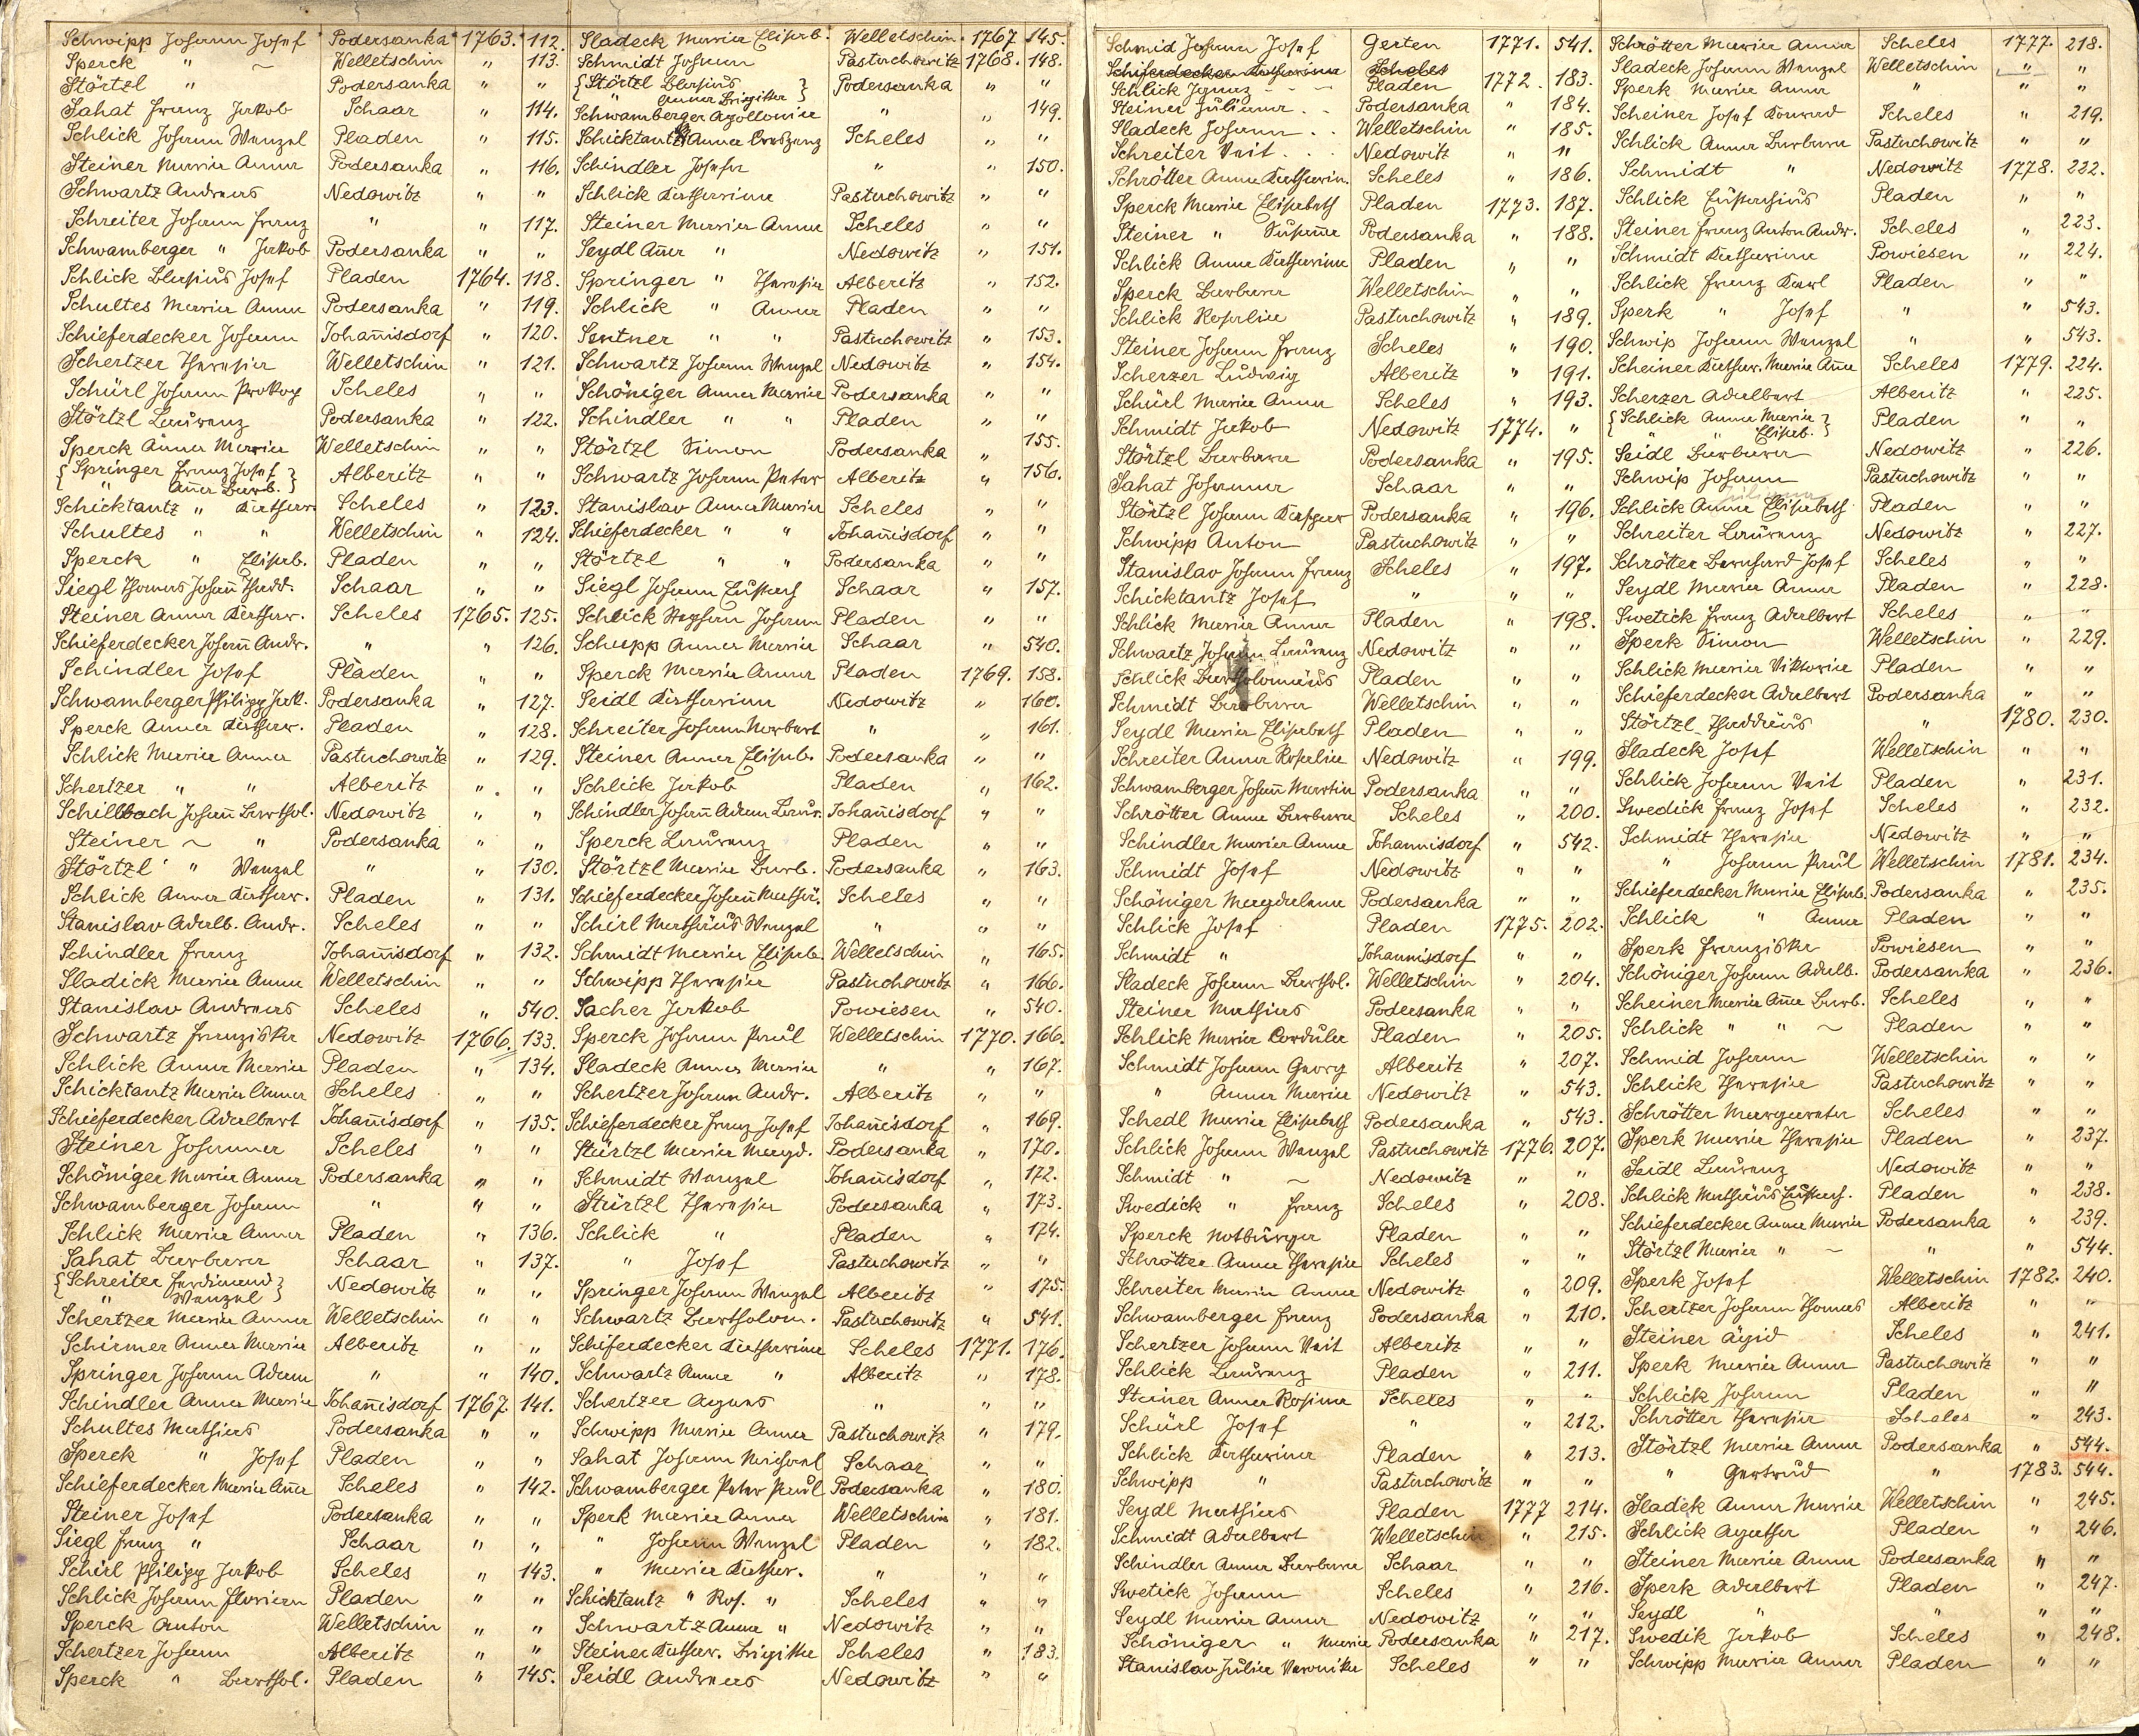 Schwipp Johann Josef Podersanka 1763. 112.
Sperck " ~ Welletschin " 113.
Störtzl " Podersanka " "
Sahat Franz Jakob Schaar " 114.
Schlick Johann Wenzel Pladen " 115.
Steiner Maria Anna Podersanka " 116.
Schwartz Andreas Nedowitz " "
Schreiter Johann Franz " " 117.
Schwamberger " Jakob Podersanka " "
Schlick Blasius Josef Pladen 1764. 118.
Schultes Maria Anna Podersanka " 119.
Schieferdecker Johann Johan̄isdorf " 120.
Schertzer Theresia Welletschin " 121.
Schürl Johann Prokop Scheles " "
Störtzl Laurenz Podersanka " 122.
Sperck Anna Maria Welletschin " "
{ Springer Franz Josef } Alberitz " "
" An̄a Barb.
Schicktantz " Kathar. Scheles " 123.
Schultes " " Welletschin " 124.
Sperck " Elisab. Pladen " "
Siegl Thomas Johan̄ Thadd. Schaar " "
Steiner Anna Kathar. Scheles 1765. 125.
Schieferdecker Johan̄ Andr. " " 126.
Schindler Josef Pladen " "
Schwamberger Philipp Jak. Podersanka " 127.
Sperck Anna Kathar. Pladen " 128.
Schlick Maria Anna Pastuchowitz " 129.
Schertzer " " Alberitz " "
Schillbach Johan̄ Barthol. Nedowitz " "
Steiner ~ " Podersanka " "
Störtzl " Wenzel " " 130.
Schlick Anna Kathar. Pladen " 131.
Stanislav Adalb. Andr. Scheles " "
Schindler Franz Johan̄isdorf " 132.
Sladick Maria Anna Welletschin " "
Stanislav Andreas Scheles " 540.
Schwartz Franziska Nedowitz 1766. 133.
Schlick Anna Maria Pladen " 134.
Schicktantz Maria Anna Scheles " "
Schieferdecker Adalbert Johan̄isdorf " 135.
Steiner Johanna Scheles " "
Schöniger Maria Anna Podersanka " "
Schwamberger Johann " " "
Schlick Maria Anna Pladen " 136.
Sahat Barbara Schaar " 137.
{ Schreiter Ferdinand } Nedowitz " "
" Wenzel
Schertzer Maria Anna Welletschin " "
Schirmer Anna Maria Alberitz " "
Springer Johann Adam " " 140.
Schindler Anna Maria Johan̄isdorf 1767. 141.
Schultes Mathias Podersanka " "
Sperck " Josef Pladen " "
Schieferdecker Maria An̄a Scheles " 142.
Steiner Josef Podersanka " "
Siegl Franz " Schaar " "
Schirl Philipp Jakob Scheles " 143.
Schlick Johann Florian Pladen " "
Sperck Anton Welletschin " "
Schertzer Johann Alberitz " "
Sperck " Barthol. Pladen " 145.
Sladeck Maria Elisab. Welletschin 1767 145.
Schmidt Johann Pastuchowitz 1768. 148.
{ Störtzl Blasius } Podersanka " "
" Anna Brigitta
Schwamberger Apollonia " " 149.
Schicktantz Anna Creszenz Scheles " "
Schindler Josefa " " 150.
Schlick Katharina Pastuchowitz " "
Steiner Maria Anna Scheles " "
Seydl An̄a " Nedowitz " 151.
Springer " Theresia Alberitz " 152.
Schlick " Anna Pladen " "
Sentner " " Pastuchowitz " 153.
Schwartz Johann Wenzel Nedowitz " 154.
Schöniger Anna Maria Podersanka " "
Schindler " " Pladen " "
Störtzl Simon Podersanka " 155.
Schwartz Johann Peter Alberitz " 156.
Stanislav Anna Maria Scheles " "
Schieferdecker " " Johan̄isdorf " "
Störtzl " " Podersanka " "
Siegl Johann Eustach Schaar " 157.
Schlick Stephan Johann Pladen " "
Schupp Anna Maria Schaar " 540.
Sperck Maria Anna Pladen 1769. 158.
Seidl Katharina Nedowitz " 160.
Schreiter Johann Norbert " " 161.
Steiner Anna Elisab. Podersanka " "
Schlick Jakob Pladen " 162.
Schindler Johan̄ Adam Laur. Johan̄isdorf " "
Sperck Laurenz Pladen " "
Störtzl Maria Barb. Podersanka " 163.
Schieferdecker Johan̄ Mathä. Scheles " "
Schirl Mathäus Wenzel " " "
Schmidt Maria Elisab. Welletschin " 165.
Schwipp Theresia Pastuchowitz " 166.
Sacher Jakob Powiesen " 540.
Sperck Johann Paul Welletschin 1770. 166.
Sladeck Anna Maria " " 167.
Schertzer Johann Andr. Alberitz " "
Schieferdecker Franz Josef Johan̄isdorf " 169.
Störtzl Maria Magd. Podersanka " 170.
Schmidt Wenzel Johan̄isdorf " 172.
Störtzl Theresia Podersanka " 173.
Schlick " Pladen " 174.
" Josef Pastuchowitz " "
Springer Johann Wenzel Alberitz " 175.
Schwartz Bartholom. Pastuchowitz " 541.
Schieferdecker Katharina Scheles 1771. 176.
Schwartz Anna " Alberitz " 178.
Schertzer Agnes " " "
Schwipp Maria Anna Pastuchowitz " 179.
Sahat Johann Michael Schaar " "
Schwamberger Peter Paul Podersanka " 180.
Sperk Maria Anna Welletschin " 181.
" Johann Wenzel Pladen " 182.
" Maria Kathar. " " "
Schicktantz " Ros. " Scheles " "
Schwartz Anna " Nedowitz " "
Steiner Kathar. Brigitta Scheles " 183.
Seidl Andreas Nedowitz " "
Schmid Johann Josef Gerten 1771. 541.
Schiferdecker Katharina Scheles
Schlick Ignaz - - - Pladen 1772. 183.
Steiner Juliana . . Podersanka " 184.
Sladeck Johann . . Welletschin " 185.
Schreiter Veit . . . Nedowitz " "
Schrötter Anna Katharin. Scheles " 186.
Sperck Maria Elisabeth Pladen 1773. 187.
Steiner " Susan̄a Podersanka " 188.
Schlick Anna Katharina Pladen " "
Sperck Barbara Welletschin " "
Schlick Rosalia Pastuchowitz " 189.
Steiner Johann Franz Scheles " 190.
Scherzer Ludwig Alberitz " 191.
Schürl Maria Anna Scheles " 193.
Schmidt Jakob Nedowitz 1774. "
Störtzl Barbara Podersanka " 195.
Sahat Johanna Schaar " "
Störtzl Johann Kaspar Podersanka " 196.
Schwipp Anton Pastuchowitz " "
Stanislav Johann Franz Scheles " 197.
Schicktantz Josef " " "
Schlick Maria Anna Pladen " 198.
Schwartz Johann Laurenz Nedowitz " "
Schlick Bartholomäus Pladen " "
Schmidt Barbara Welletschin " "
Seydl Maria Elisabeth Pladen " "
Schreiter Anna Rosalia Nedowitz " 199.
Schwamberger Johan̄ Martin Podersanka " "
Schrötter Anna Barbara Scheles " 200.
Schindler Maria Anna Johannisdorf " 542.
Schmidt Josef Nedowitz " "
Schöniger Magdalena Podersanka " "
Schlick Josef Pladen 1775. 202.
Schmidt " Johannisdorf " "
Sladeck Johann Barthol. Welletschin " 204.
Steiner Mathias Podersanka " "
Schlick Maria Cordula Pladen " 205.
Schmidt Johann Georg Alberitz " 207.
" Anna Maria Nedowitz " 543.
Schedl Maria Elisabeth Podersanka " 543.
Schlick Johann Wenzel Pastuchowitz 1776. 207.
Schmidt " ~ Nedowitz " "
Swedick " Franz Scheles " 208.
Sperck Notburga Pladen " "
Schrötter Anna Theresia Scheles " "
Schreiter Maria Anna Nedowitz " 209.
Schwamberger Franz Podersanka " 210.
Schertzer Johann Veit Alberitz " "
Schlick Laurenz Pladen " 211.
Steiner Anna Rosina Scheles " "
Schürl Josef " " 212.
Schlick Katharina Pladen " 213.
Schwipp " Pastuchowitz " "
Seydl Mathias Pladen 1777 214.
Schmidt Adalbert Welletschin " 215.
Schindler Anna Barbara Schaar " "
Swetick Johann Scheles " 216.
Seydl Maria Anna Nedowitz " "
Schöniger " Maria Podersanka " 217.
Stanislav Julia Veronika Scheles " "
Schrötter Maria Anna Scheles 1777. 218.
Sladeck Johann Wenzel Welletschin " "
Sperk Maria Anna " " "
Scheiner Josef Konrad Scheles " 219.
Schlick Anna Barbara Pastuchowitz " "
Schmidt " Nedowitz 1778. 222.
Schlick Eustachius Pladen " "
Steiner Franz Anton Andr. Scheles " 223.
Schmidt Katharina Powiesen " 224.
Schlick Franz Karl Pladen " "
Sperk " Josef " " 543.
Schwip Johann Wenzel " " 543.
Scheiner Kathar. Maria An̄a Scheles 1779. 224.
Scherzer Adalbert Alberitz " 225.
{ Schlick Anna Maria } Pladen " "
" " Elisab.
Seidl Barbara Nedowitz " 226.
Schwip Johann Pastuchowitz " "
Juliana
Schlick Anna Elisabeth Pladen " "
Schreiter Laurenz Nedowitz " 227.
Schrötter Bernhard Josef Scheles " "
Seydl Maria Anna Pladen " 228.
Swetick Franz Adalbert Scheles " "
Sperk Simon Welletschin " 229.
Schlick Maria Viktoria Pladen " "
Schieferdecker Adalbert Podersanka " "
Störtzl Thaddäus " 1780. 230.
Sladeck Josef Welletschin " "
Schlick Johann Veit Pladen " 231.
Swedick Franz Josef Scheles " 232.
Schmidt Theresia Nedowitz " "
" Johann Paul Welletschin 1781. 234.
Schieferdecker Maria Elisab. Podersanka " 235.
Schlick " Anna Pladen " "
Sperk Franziska Powiesen " "
Schöniger Johann Adalb. Podersanka " 236.
Scheiner Maria An̄a Barb. Scheles " "
Schlick " " ~ Pladen " "
Schmid Johann Welletschin " "
Schlick Theresia Pastuchowitz " "
Schrötter Margareta Scheles " "
Sperk Maria Theresia Pladen " 237.
Seidl Laurenz Nedowitz " "
Schlick Mathäus Eustach. Pladen " 238.
Schieferdecker Anna Maria Podersanka " 239.
Störtzl Maria " ~ " " 544.
Sperk Josef Welletschin 1782. 240.
Schertzer Johann Thomas Alberitz " "
Steiner Ägid Scheles " 241.
Sperk Maria Anna Pastuchowitz " "
Schlick Johann Pladen " "
Schrötter Theresia Scheles " 243.
Störtzl Maria Anna Podersanka " 544.
" Gertrud " 1783. 544.
Sladek Anna Maria Welletschin " 245.
Schlick Agatha Pladen " 246.
Steiner Maria Anna Podersanka " "
Sperk Adalbert Pladen " 247.
Seydl " " " "
Swedik Jakob Scheles " 248.
Schwipp Maria Anna Pladen " "